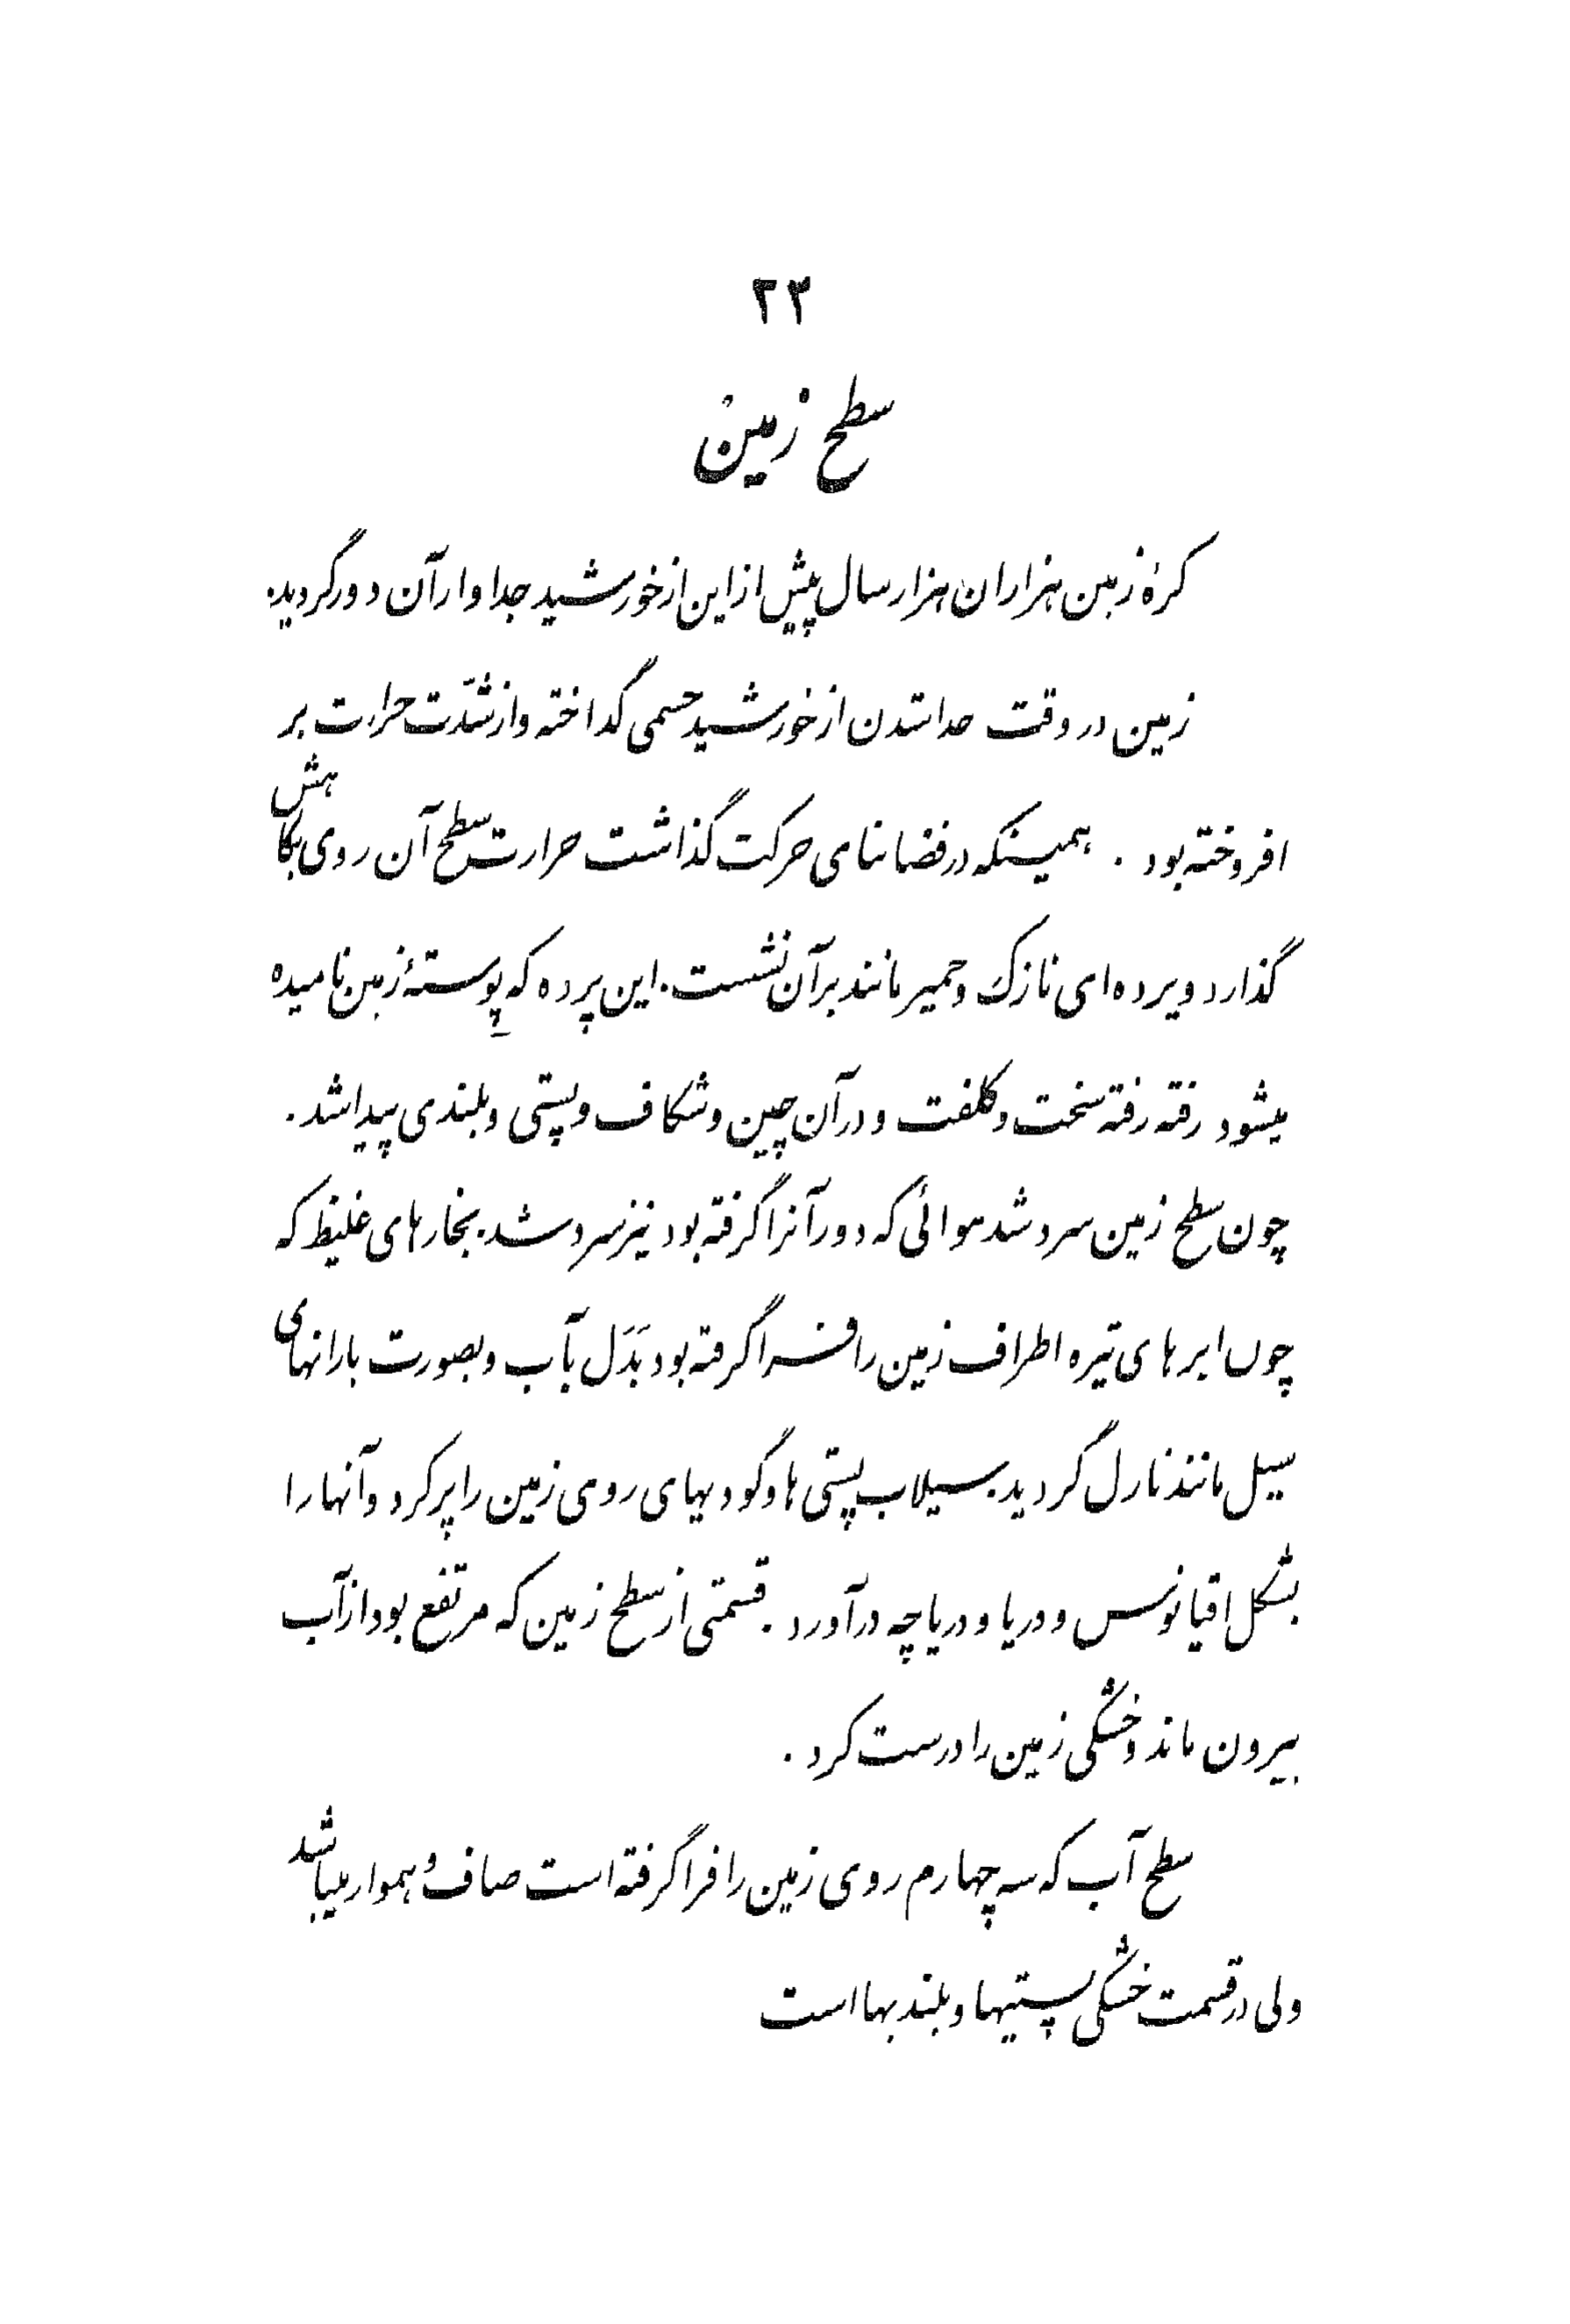 ۲۳
سطح زمین
کرهٔ زمین هزاران هزار سال پیش از این از خورشید جدا و از آن دور گردید.
زمین در وقت جدا شدن از خورشید جسمی گداخته و از شدّت حرارت بر
افروخته بود . همینکه در فضا بنای حرکت گذاشت حرارت سطح آن روی بکاهش
گذارد و پرده‌ای نازک و خمیر مانند بر آن نشست. این پرده که پوستهٔ زمین نامیده
میشود رفته رفته سخت و کلفت و در آن چین و شکاف و پستی و بلندی پیدا شد .
چون سطح زمین سرد شد هوائی که دور آنرا گرفته بود نیز سرد شد. بخارهای غلیظ که
چون ابرهای تیره اطراف زمین را فرا گرفته بود بَدَل بآب و بصورت بارانهای
سیل مانند نازل گردید. سیلاب پستی ها و گودیهای روی زمین را پر کرد و آنها را
بشکل اقیانوس و دریا و دریاچه درآورد . قسمتی از سطح زمین که مرتفع بود از آب
بیرون ماند و خشکی زمین را درست کرد .
سطح آب که سه چهارم روی زمین را فرا گرفته است صاف و هموار میباشد
ولی در قسمت خشکی پستیها و بلندیها است